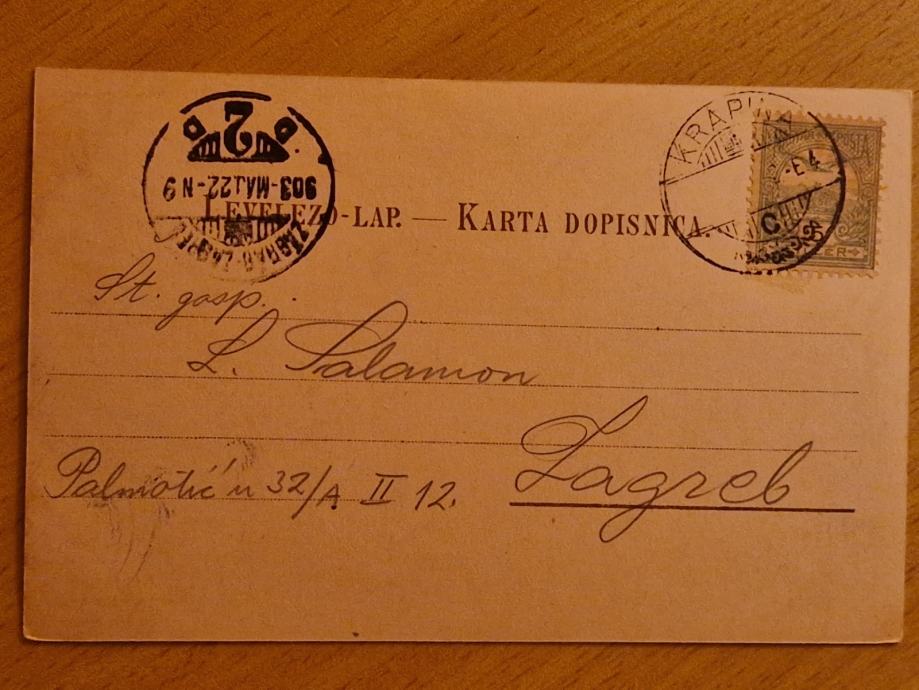 2
D D
903-MAJ.22-N9
ZÁGRÁB-ZAGREB
KRAPINA
-E4
C
LEVELEZŐ-LAP. — KARTA DOPISNICA.
St. gosp.
L. Salamon
Palmotić u 32/A II 12.
Zagreb